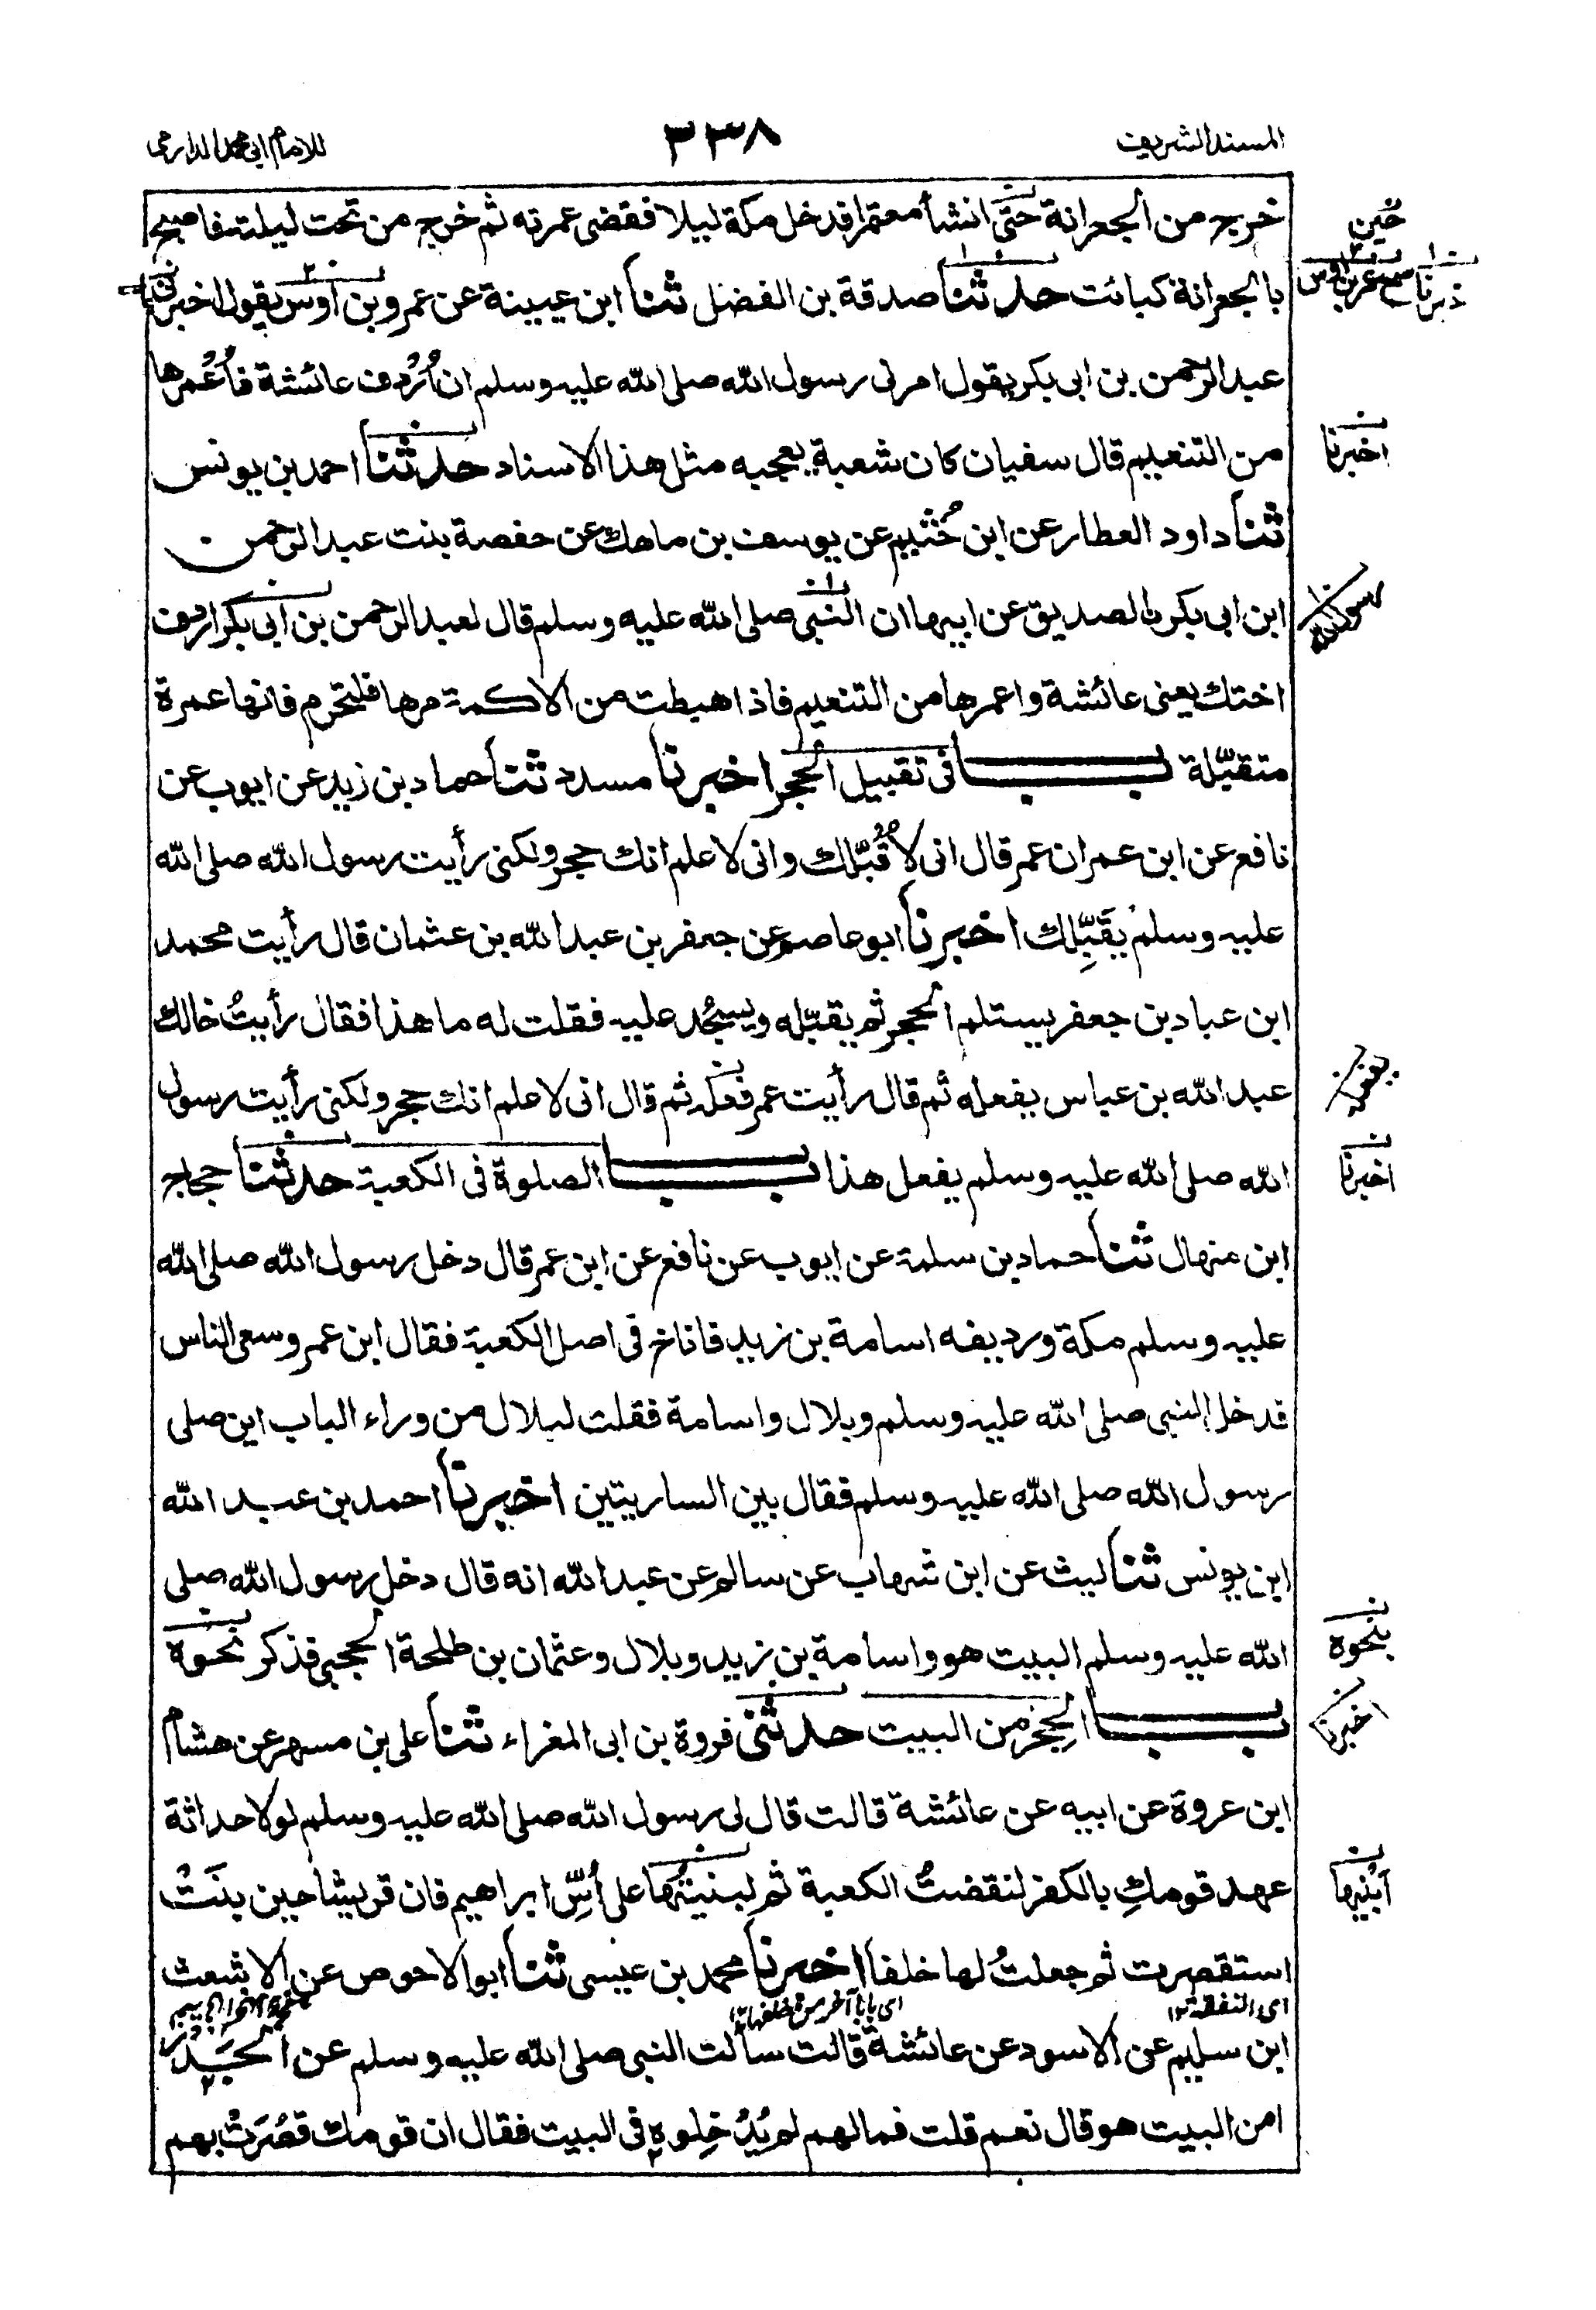 المسند الشريف
٣٣٨
للامام ابي محمد الدارمي
خرج من الجعرانة حتى انشأ معتمرا فدخل مكة ليلا فقضى عمرته ثم خرج من تحت ليلته فاصبح
حين
بالجعرانة كبائت حدثنا صدقة بن الفضل ثنا ابن عيينة عن عمرو بن اوس يقول اخبرني
عبد الرحمن بن ابي بكر يقول امرني رسول الله صلى الله عليه وسلم ان أُرْدِف عائشة فأُعْمِرها
من التنعيم قال سفيان كان شعبة يعجبه مثل هذا الاسناد حدثنا احمد بن يونس
اخبرنا
ثنا داود العطار عن ابن خُثيم عن يوسف بن ماهك عن حفصة بنت عبد الرحمن
ابن ابي بكر الصديق عن ابيها ان النبي صلى الله عليه وسلم قال لعبد الرحمن بن ابي بكر اردف
رسول الله
اختك يعني عائشة واعمرها من التنعيم فاذا هبطت من الاكمة مرها فلتحرم فانها عمرة
متقبّلة باب في تقبيل الحجر اخبرنا مسدد ثنا حماد بن زيد عن ايوب عن
نافع عن ابن عمر ان عمر قال اني لاُقَبّلك واني لاعلم انك حجر ولكني رأيت رسول الله صلى الله
عليه وسلم يُقَبِّلك اخبرنا ابو عاصم عن جعفر بن عبد الله بن عثمان قال رأيت محمد
ابن عباد بن جعفر يستلم الحجر ثم يقبّله ويسجُد عليه فقلت له ما هذا فقال رأيتُ خالك
عبد الله بن عباس يفعله ثم قال رأيت عمر فعله ثم قال اني لاعلم انك حجر ولكني رأيت رسول
يفعله
الله صلى الله عليه وسلم يفعل هذا باب الصلوة في الكعبة حدثنا حجاج
اخبرنا
ابن منهال ثنا حماد بن سلمة عن ايوب عن نافع عن ابن عمر قال دخل رسول الله صلى الله
عليه وسلم مكة ورديفه اسامة بن زيد فاناخ في اصل الكعبة فقال ابن عمر وسعى الناس
فدخل النبي صلى الله عليه وسلم وبلال واسامة فقلت لبلال من وراء الباب اين صلى
رسول الله صلى الله عليه وسلم فقال بين الساريتين اخبرنا احمد بن عبد الله
ابن يونس ثنا ليث عن ابن شهاب عن سالم عن عبد الله انه قال دخل رسول الله صلى
الله عليه وسلم البيت هو واسامة بن زيد وبلال وعثمان بن طلحة الحجبي فذكر نحوه
بنحوه
باب الحِجْر من البيت حدثني فروة بن ابي المغراء ثنا علي بن مسهر عن هشام
اخبرنا
ابن عروة عن ابيه عن عائشة قالت قال لي رسول الله صلى الله عليه وسلم لولا حداثة
عهد قومكِ بالكفر لنقضتُ الكعبة ثم لبنيتُها على أُسِّ ابراهيم فان قريشا حين بنَتْ
ابنيها
استقصرت ثم جعلتُ لها خلفا اخبرنا محمد بن عيسى ثنا ابو الاحوص عن الاشعث
اي النفقة ١٢
اي بابا آخر من خلفها ١٢
ابن سليم عن الاسود عن عائشة قالت سألت النبي صلى الله عليه وسلم عن الجَدْر
امن البيت هو قال نعم قلت فما لهم لم يُدْخِلوه في البيت فقال ان قومك قصُرَتْ بهم